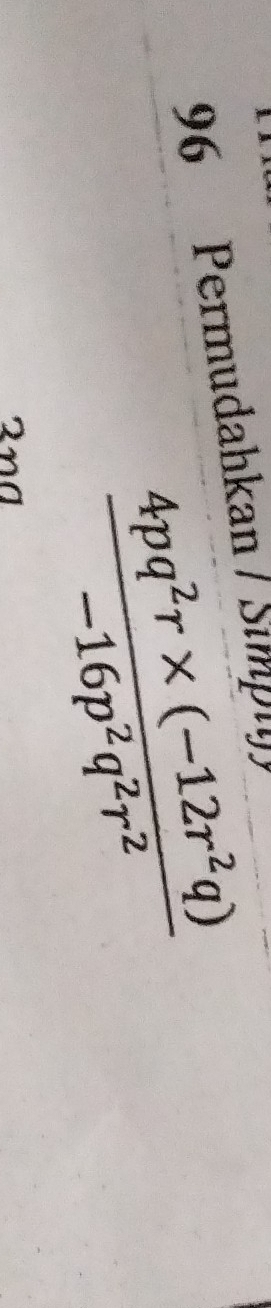 96 Permudahkan / Simplify
4pq²r × (−12r²q)
−16p²q²r²
3pq